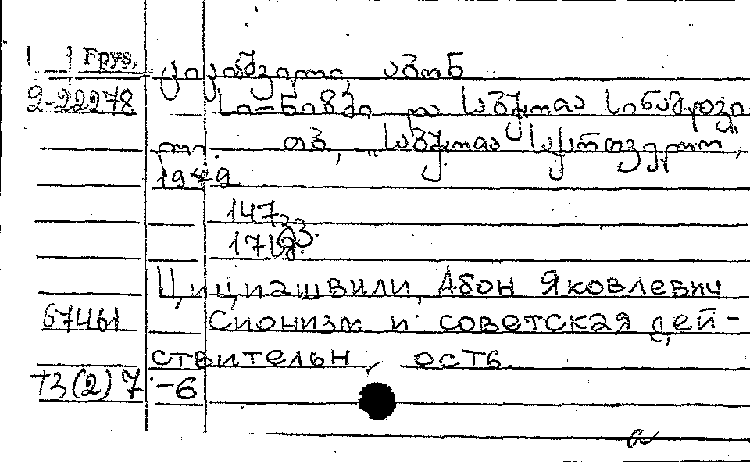 Груз.
ციციაშვილი, აბონ
2-22278
სიონიზმი და საბჭოთა სინამდვი-
ლე. თბ., „საბჭოთა საქართველო",
1979
147 გვ.
171გ.
Цициашвили, Абон Яковлевич
67461 Сионизм и советская дей-
ствительн ость
Т3(2)7-6